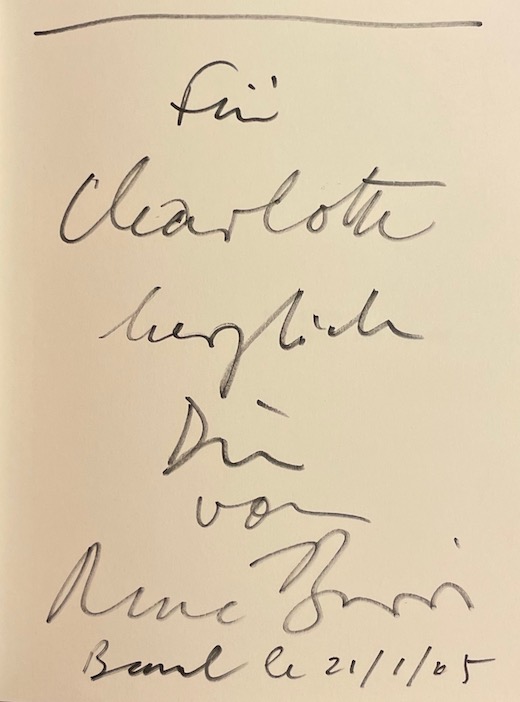 Für
Charlotte
herzlich
Dir
von
Rene Burri
Basel le 21/1/05